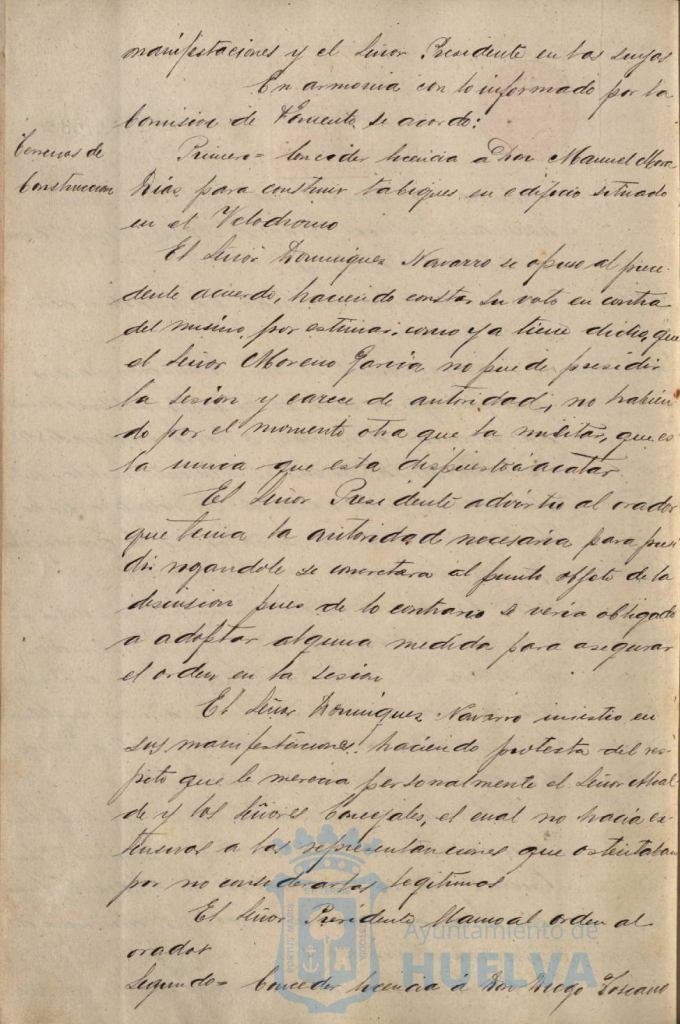 manifestaciones y el Señor Presidente en las suyas
En armonia con lo informado por la
Comision de Fomento se acordó:
Licencias de
Construccion
Primero = Conceder licencia a Don Manuel Mora
Dias para construir tabiques en edificio situado
en el Velodromo
El Señor Dominguez Navarro se opuso al prece-
dente acuerdo, haciendo constar su voto en contra
del mismo, por estimar, como ya tiene dicho, que
el Señor Moreno Garcia no puede presidir
la sesion y carece de autoridad, no habien
do por el momento otra que la militar, que es
la unica que esta dispuesto á acatar
El Señor Presidente advirtio al orador
que tenia la autoridad necesaria para presi
dir rogandole se concretara al punto objeto de la
discusion pues de lo contrario se veria obligado
a adoptar alguna medida para asegurar
el orden en la sesion
El Señor Dominguez Navarro insistio en
sus manifestaciones haciendo protesta del res-
peto que le merecia personalmente el Señor Alcal
de y los Señores Concejales, el cual no hacia ex-
tensivos a las representaciones que ostentaban
por no considerarlas legitimas
El Señor Presidente llamo al orden al
orador
Segundo = Conceder licencia á Don Diego Toscano
PORTUS MARIS
CUSTODIA
Ayuntamiento de
HUELVA